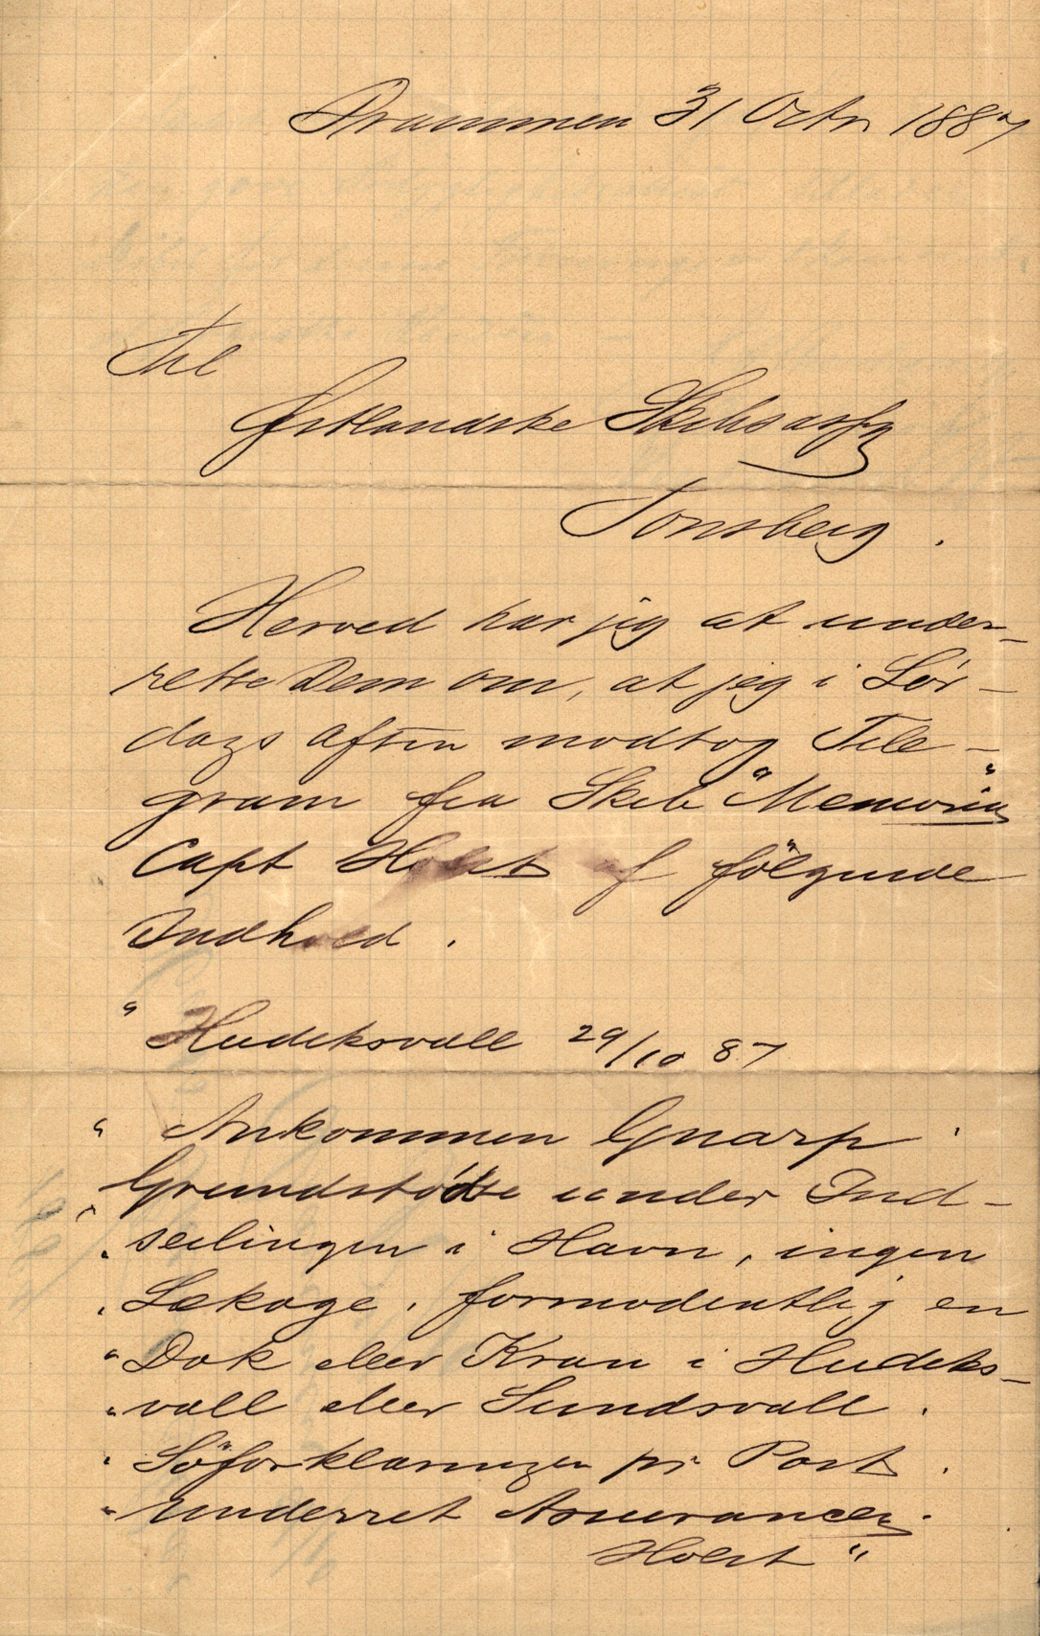 Drammen 31 Octr 1887
Til
Østlandske Skibsassfg
Tønsberg.
Herved har jeg at under-
rette Dem om, at jeg i Lør-
dags aften modtog Tele-
gram fra Skib "Memoria"
Capt Holst af følgende
Indhold.
" Hudeksvall 29/10 87
" Ankommen Gnarp.
" Grundstødte under Ind-
" seilingen i Havn, ingen
" Lækage. formodentlig en
" Dok eller Kran i Hudeks-
" vall eller Sundsvall.
" Søforklaringen pr Post.
" underret Assurancen.
Holst "